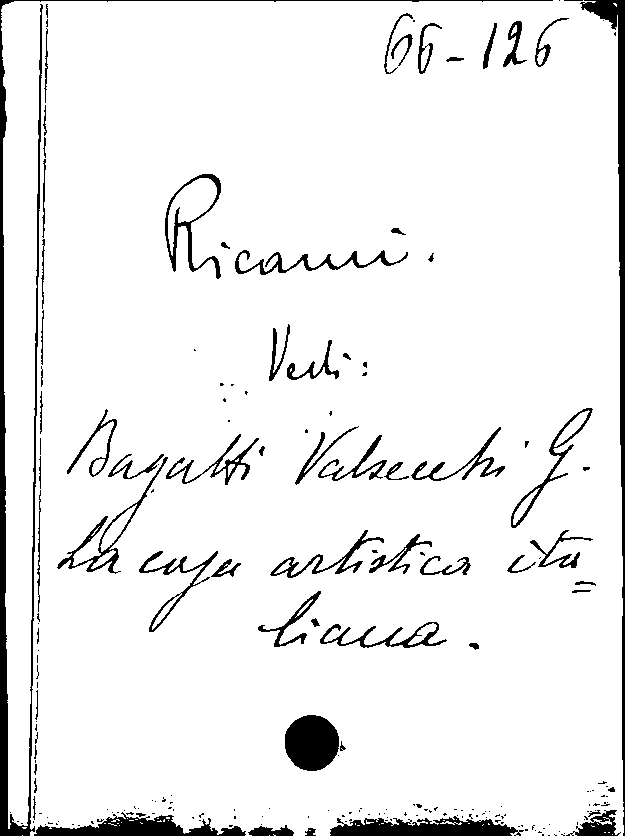 66-126
Ricami.
Vedi:
Bagatti Valsecchi G.
La casa artistica ita=
liana.